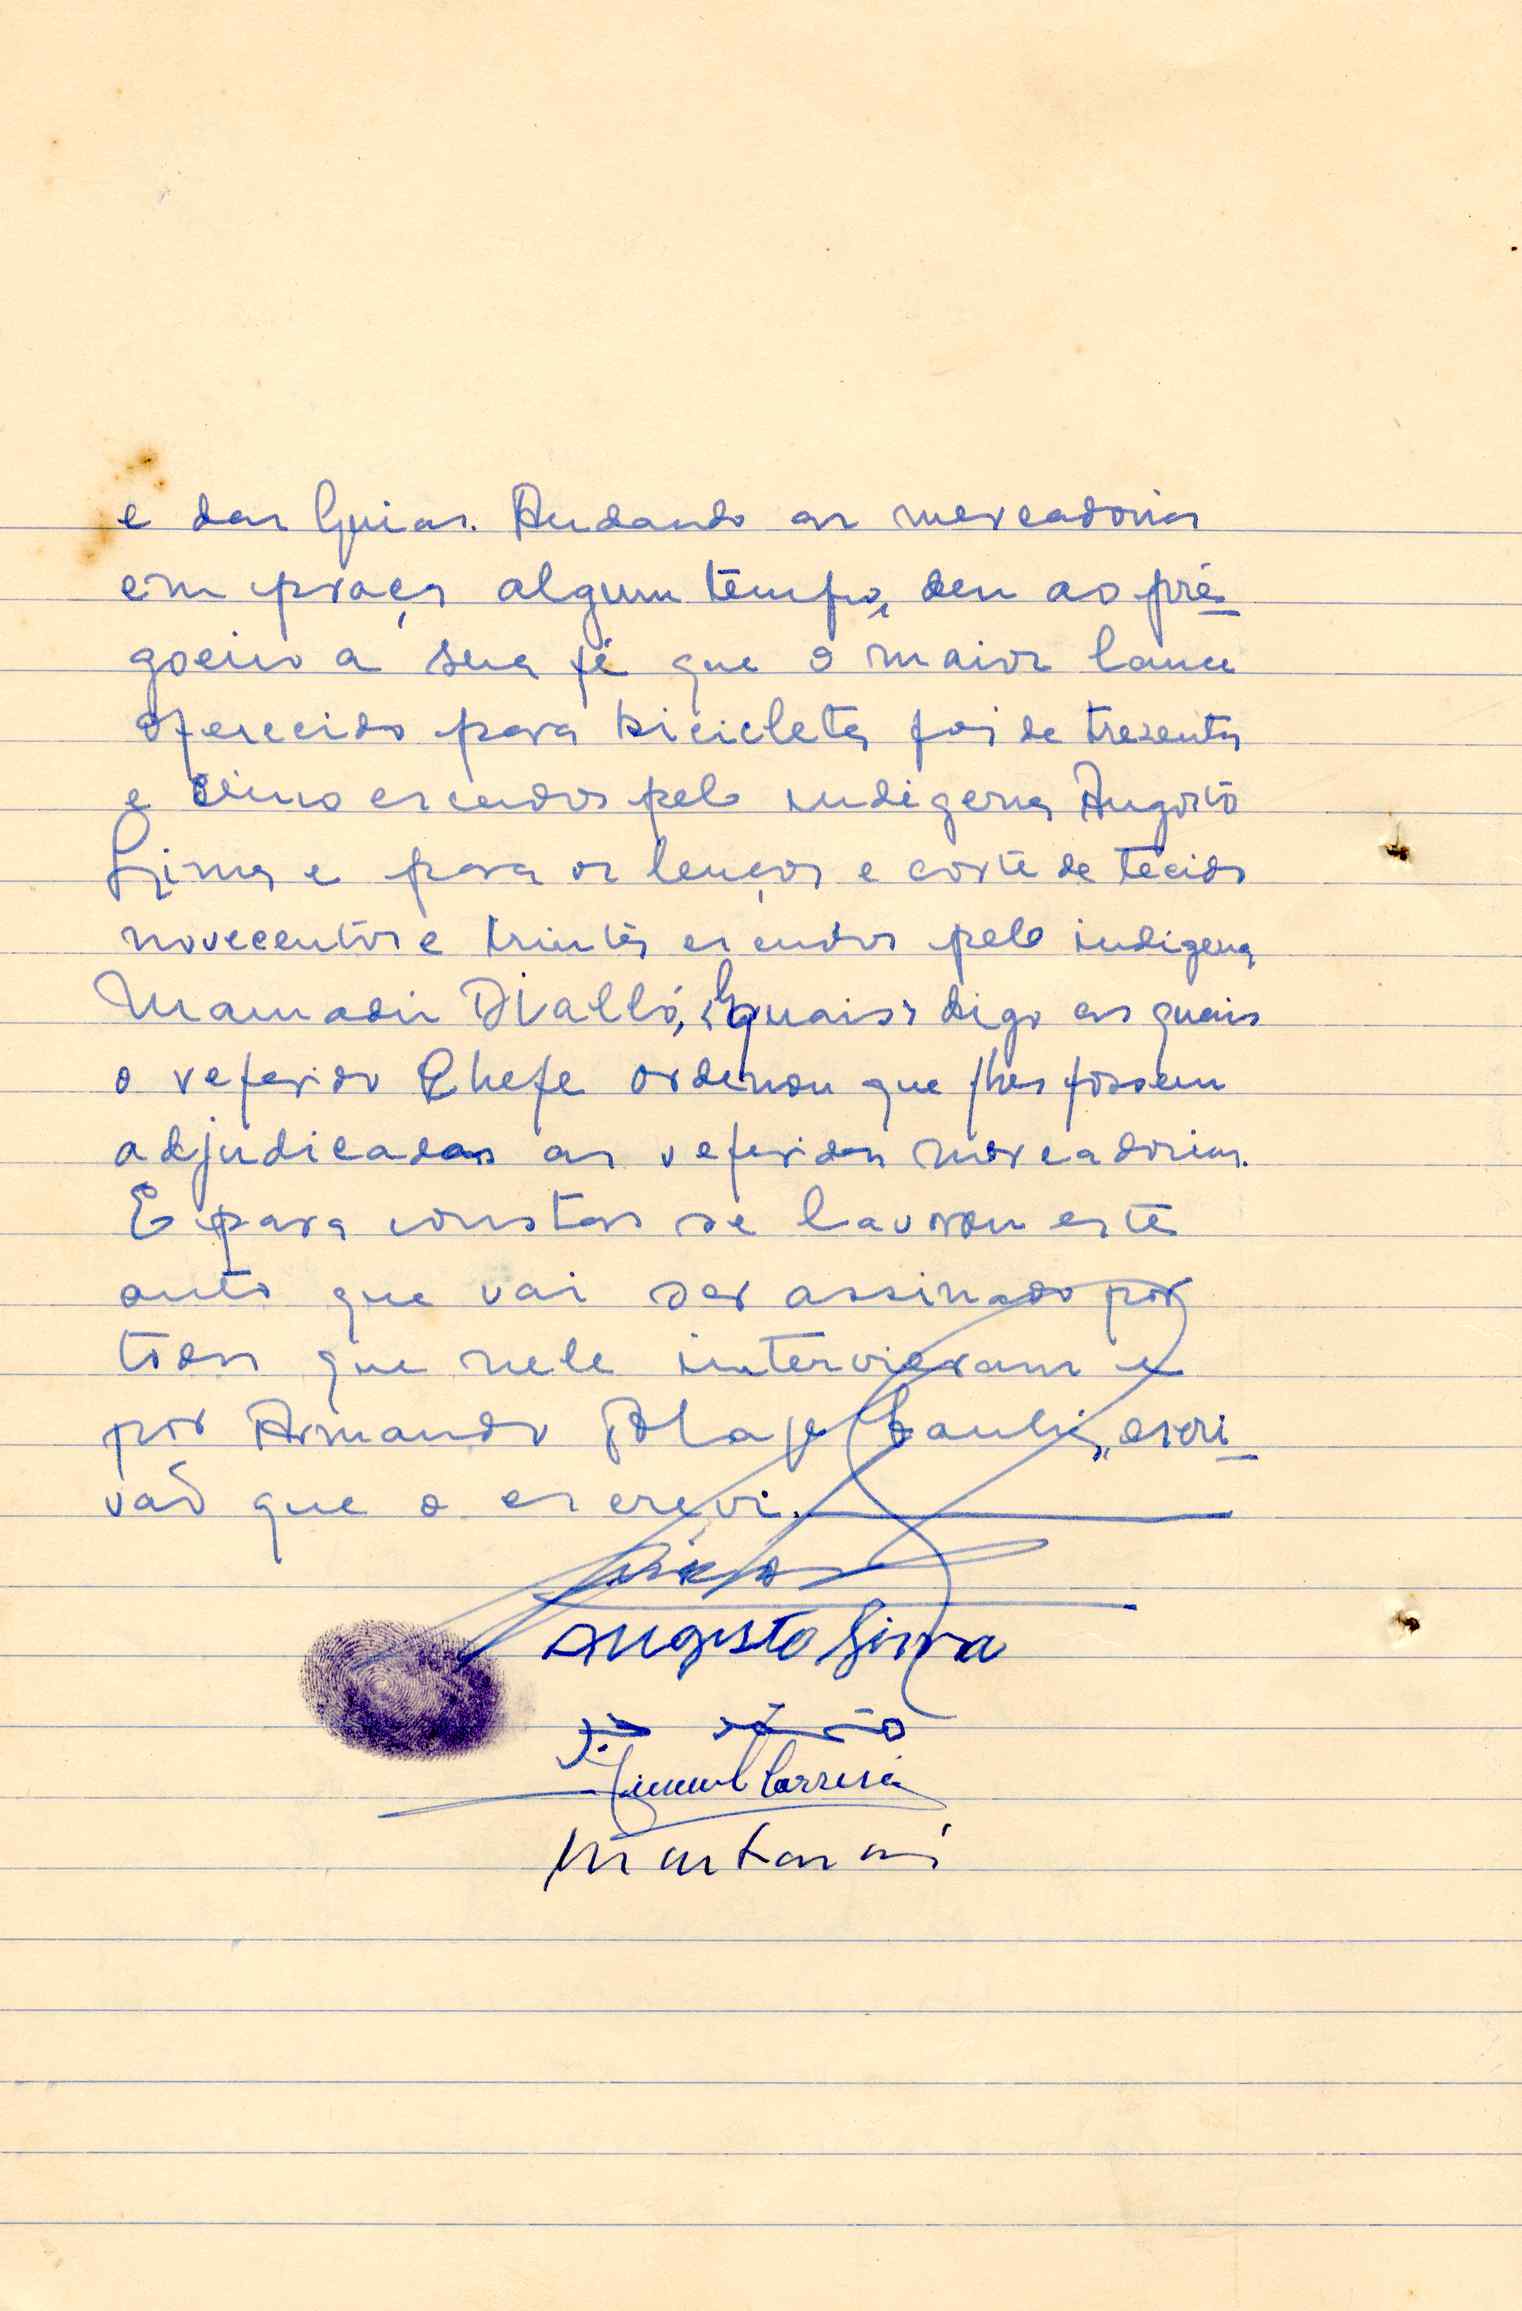 e das Guias. Andando as mercadorias
em praça algum tempo, deu ao pré-
goeiro a sua fé que o maior lance
oferecido para bicicleta foi de trezentos
e cinco escudos pelo indigena Augosto
Lima e para os lenços e corte de tecido
novecentos e trinta escudos pelo indigena
Mamadú Dialló, quais, digo as quais
o referido Chefe ordenou que lhes fossem
adjudicadas as referidas mercadorias.
E para constar se lavrou este
auto que vai ser assinado por
todos que nele intervieram e
por Armando, escri-
vão que o escrevi.
Augusto Lima